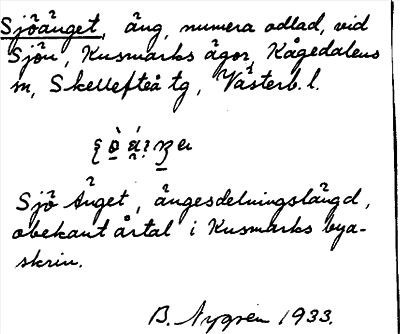 Sjöänget, äng, numera odlad, vid
Sjön, Kusmarks ägor, Kågedalens
m, Skellefteå tg, Västerb. l.
Sjö Änget, ängesdelningslängd,
obekant årtal i Kusmarks bya-
skrin.
B. Nygren 1933.